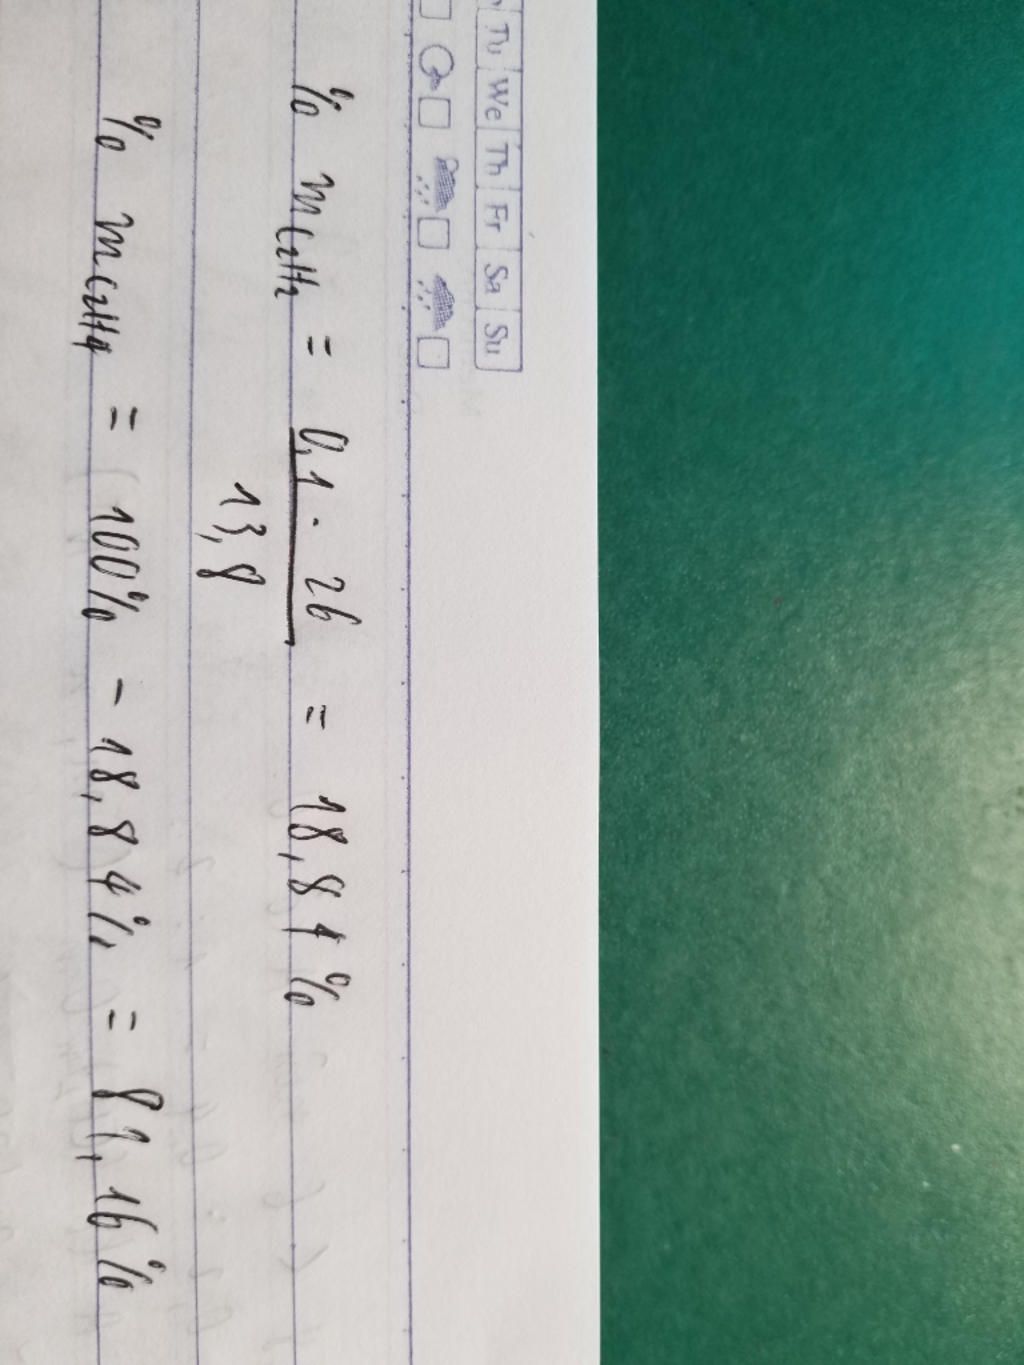 Tu We Th Fr Sa Su
% mC2H2 = 0,1 . 26 = 18,84%
13,8
% mC2H4 = 100% - 18,84% = 81,16%